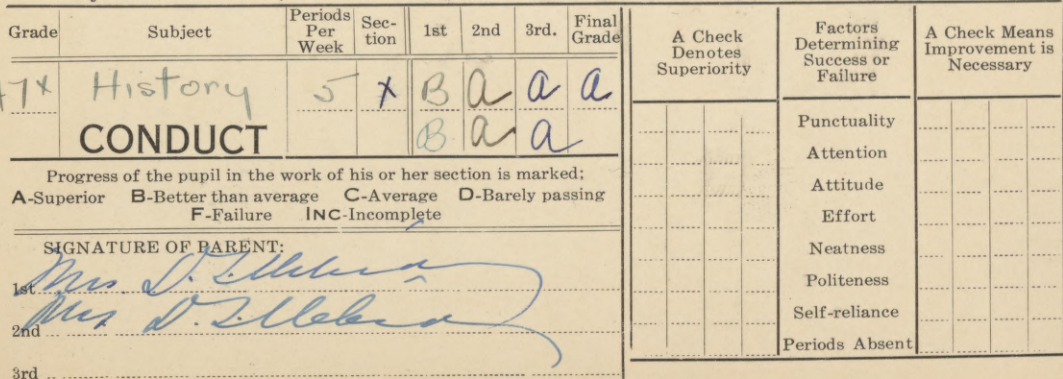 Grade Subject Periods Per Week Sec-tion 1st 2nd 3rd. Final Grade
7x History 5 x B a a a
CONDUCT B a a
Progress of the pupil in the work of his or her section is marked;
A-Superior B-Better than average C-Average D-Barely passing
F-Failure INC-Incomplete
SIGNATURE OF PARENT:
1st Mrs. D.
2nd Mrs. D.
3rd
A Check Denotes Superiority Factors Determining Success or Failure A Check Means Improvement is Necessary
Punctuality
Attention
Attitude
Effort
Neatness
Politeness
Self-reliance
Periods Absent